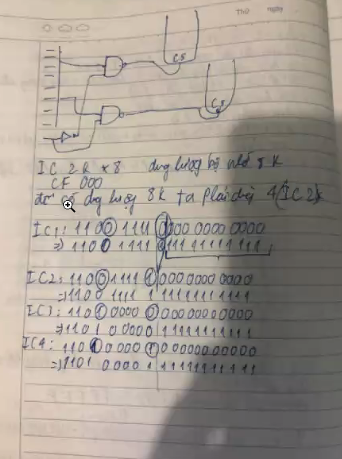 THỨ NGÀY
CS
CS
IC 2k × 8 dung lượng bộ nhớ 8k
CF 000
để có dung lượng 8k ta phải 4 (IC 2)k
IC1: 110 0 1111 0000 0000 0000
=> 110 0 1111 0111 1111 1111
IC2: 110 0 1111 1000 0000 0000
=> 110 0 1111 1111 1111 1111
IC3: 110 1 0000 0000 0000 0000
=> 1101 0000 0111 1111 1111
IC4: 110 1 0000 1000 0000 0000
=> 1101 0000 1111 1111 1111